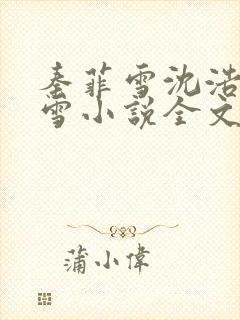 秦菲雪沈浩
雪小説全文
蒲小偉